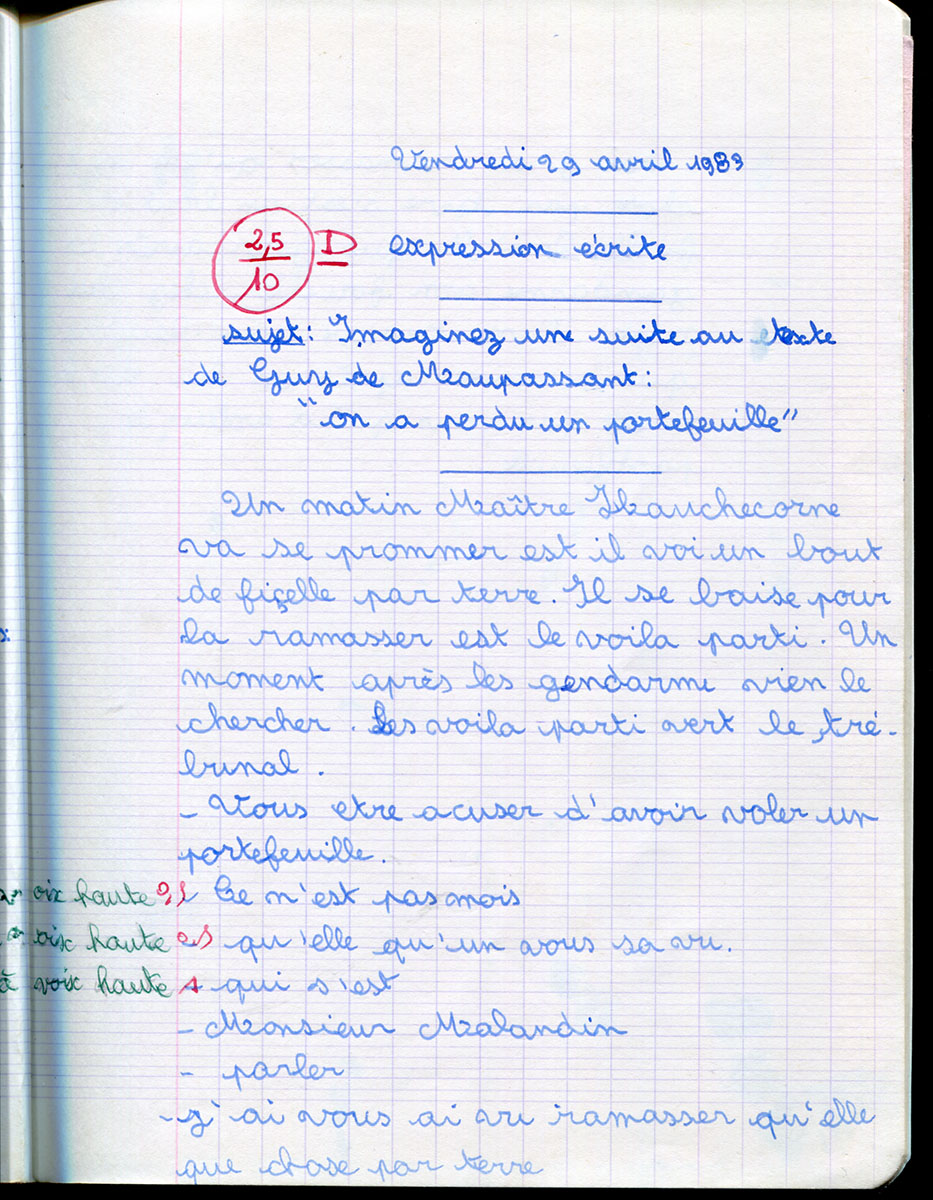 Vendredi 29 avril 1983
2,5
10
D expression écrite
sujet: Imaginez un suite au texte
de Guy de Maupassant:
"on a perdu un portefeuille"
Un matin Maître Hauchecorne
va se prommer est il voi un bout
de fiçelle par terre. Il se baise pour
la ramasser est le voila parti. Un
moment après les gendarme vien le
chercher. Les voila parti vert le tré-
bunal.
- Vous etre acuser d'avoir voler un
portefeuille.
oix haute Ce n'est pas mois
oix haute qu'elle qu'un vous sa vu.
à voix haute - qui s'est
- Monsieur Malandin
- parler
- j'ai vous ai vu ramasser qu'elle
que chose par terre